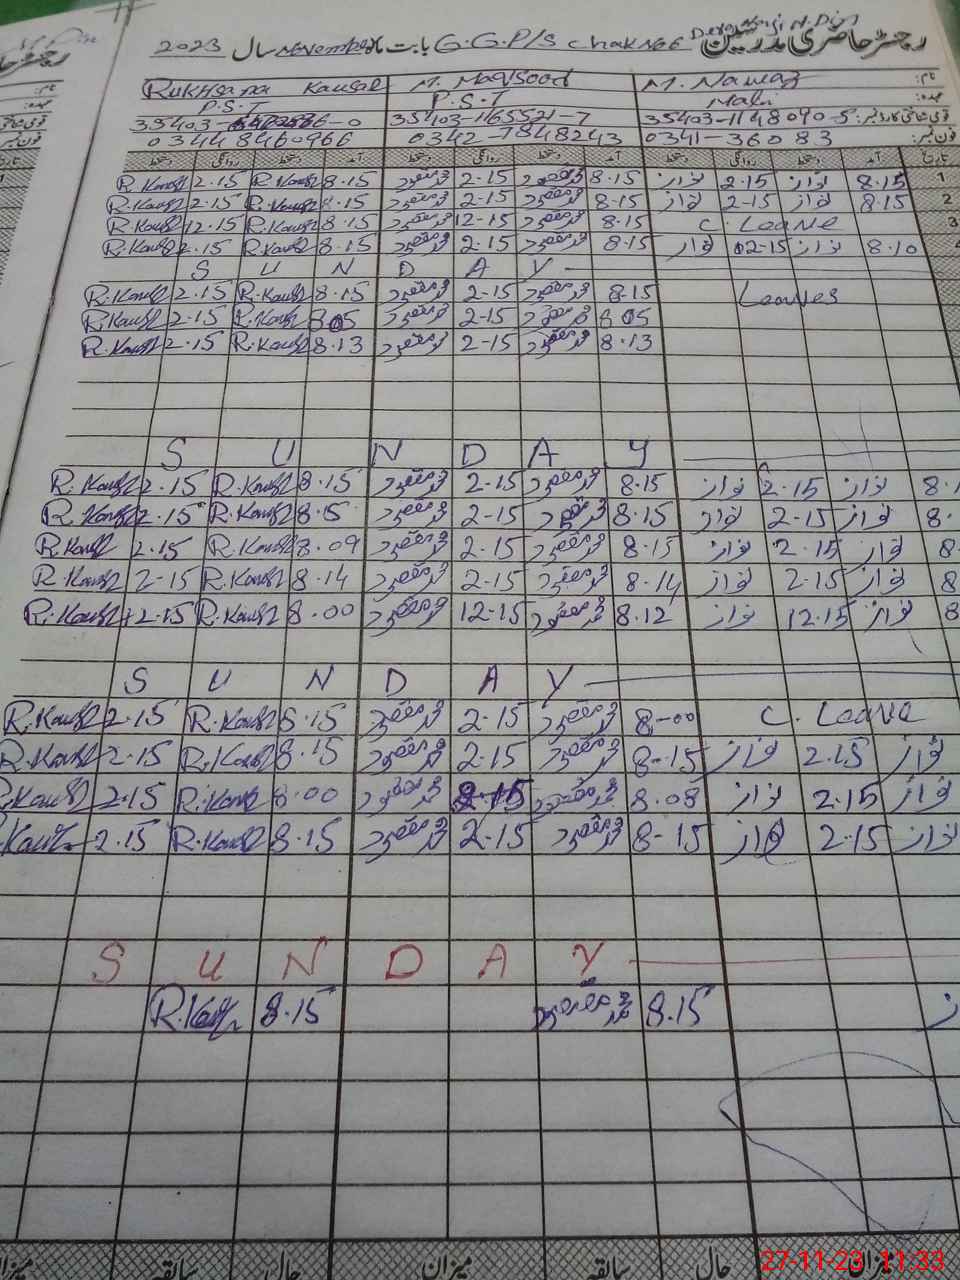 رجسٹر حاضری مدرسین G.G.P/S Chak N66 بابت ماہ November سال 2023
نام: M. Nawaz M. Maqsood Rukhsana Kausar
عہدہ: Mali P.S.T P.S.T
35403-1148090-5 35403-1165521-7 35403-
فون نمبر: 0341-36083 0342-7848243 03448460966
تاریخ آمد دستخط روانگی دستخط آمد دستخط روانگی دستخط آمد دستخط روانگی دستخط
1 8.15 نواز 2.15 نواز 8.15 محمد مقصود 2-15 محمد مقصود 8.15 R.Kausar 2.15 R.Kausar
2 8.15 نواز 2-15 نواز 8.15 محمد مقصود 2-15 محمد مقصود 8.15 R.Kausar 2.15 R.Kausar
3 C. Leave 8.15 محمد مقصود 12-15 محمد مقصود 8.15 R.Kausar 12.15 R.Kausar
4 8.10 نواز 02-15 نواز 8.15 محمد مقصود 2.15 محمد مقصود 8.15 R.Kausar 2.15 R.Kausar
S U N D A Y
Leaves 8.15 محمد مقصود 2-15 محمد مقصود 8.15 R.Kausar 2.15 R.Kausar
8.05 محمد مقصود 2-15 محمد مقصود 8.05 R.Kausar 2.15 R.Kausar
8.13 محمد مقصود 2-15 محمد مقصود 8.13 R.Kausar 2.15 R.Kausar
S U N D A Y
نواز 2.15 نواز 8.15 محمد مقصود 2-15 محمد مقصود 8.15 R.Kausar 2.15 R.Kausar
نواز 2-15 نواز 8.15 محمد مقصود 2-15 محمد مقصود 8.15 R.Kausar 2.15 R.Kausar
نواز 2.15 نواز 8.15 محمد مقصود 2.15 محمد مقصود 8.09 R.Kausar 2.15 R.Kausar
نواز 2.15 نواز 8.14 محمد مقصود 2.15 محمد مقصود 8.14 R.Kausar 2-15 R.Kausar
نواز 12.15 نواز 8.12 محمد مقصود 12-15 محمد مقصود 8.00 R.Kausar 12.15 R.Kausar
S U N D A Y
C. Leave 8-00 محمد مقصود 2-15 محمد مقصود 8.15 R.Kausar 2.15 R.Kausar
نواز 2.15 نواز 8-15 محمد مقصود 2.15 محمد مقصود 8.15 R.Kausar 2.15 R.Kausar
نواز 2.15 نواز 8.08 محمد مقصود 2.15 محمد مقصود 8.00 R.Kausar 2.15 R.Kausar
نواز 2.15 نواز 8-15 محمد مقصود 2.15 محمد مقصود 8.15 R.Kausar 2.15 Kausar
S U N D A Y
8.15 محمد مقصود 8.15 R.Kausar
میزان حال سابقہ میزان حال سابقہ میزان
27-11-23 11:33